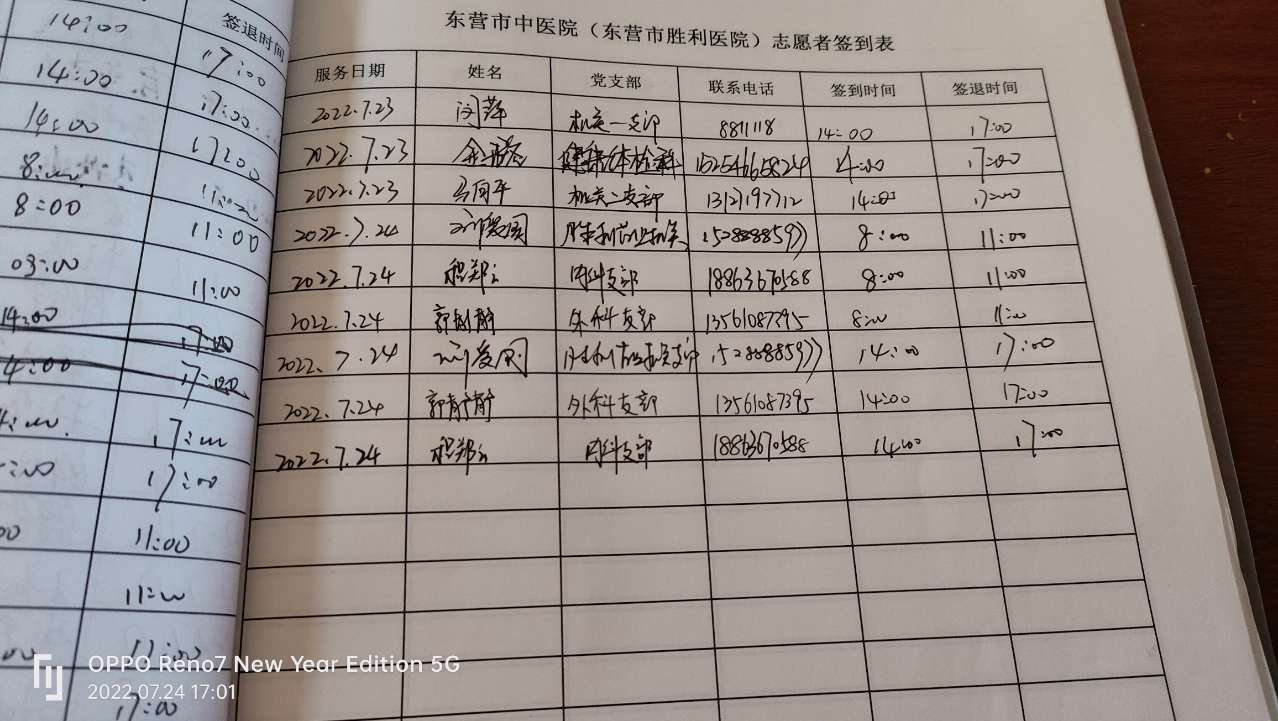 签退时间
14:00 17:00
14:00 17:00
14:00 17:00
8:00 11:00
8:00 11:00
03:00 11:00
14:00 17:00
14:00 17:00
17:00
17:00
11:00
11:00
17:00
17:00
东营市中医院（东营市胜利医院）志愿者签到表
服务日期 姓名 党支部 联系电话 签到时间 签退时间
2022.7.23 闫萍 机关一支部 8811118 14:00 17:00
2022.7.23 健康体检科 15254665824 14:00 17:00
2022.7.23 机关二支部 13121197712 14:00 17:00
2022.7.24 8:00 11:00
2022.7.24 程郑 内科支部 18863670588 8:00 11:00
2022.7.24 郭静静 外科支部 13561087395 8:00 11:00
2022.7.24 14:00 17:00
2022.7.24 郭静静 外科支部 13561087395 14:00 17:00
2022.7.24 程郑 内科支部 18863670588 14:00 17:00
OPPO Reno7 New Year Edition 5G
2022.07.24 17:01